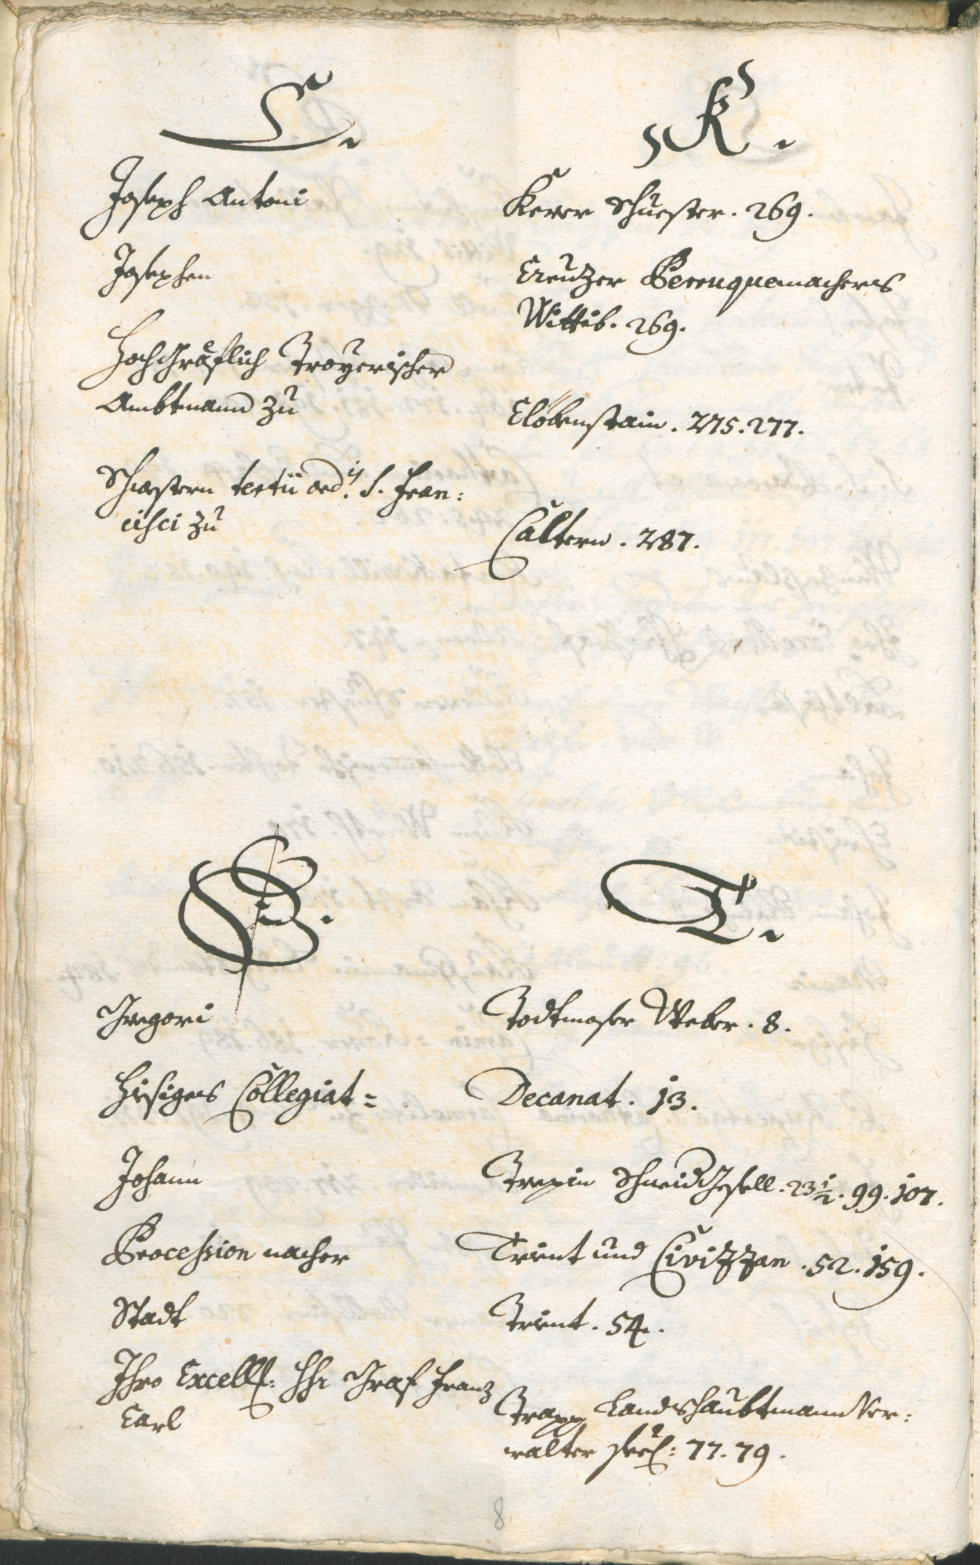 C. K.
Joseph Antoni Kerer Schuester. 269.
Josephen Creuzer Perruquemachers
Wittib. 269.
Hochgräflich Troyerischer
Ambtmann zu Clobenstain. 275. 277.
Schwestern tertii ord: S. Fran:
cisci zu Caltern. 287.
D. T.
Gregori Todtmoser Weber. 8.
Hiesiges Collegiat= Decanat. 13.
Johann Trepin Schneid Gesell. 23 1/2. 99. 107.
Procession nacher Trient und Civizzan. 52. 159.
Stadt Trient. 54.
Ihro Excell: Hr Graf Franz
Carl Trapp Landshaubtmann Ver:
walter 77. 79.
8